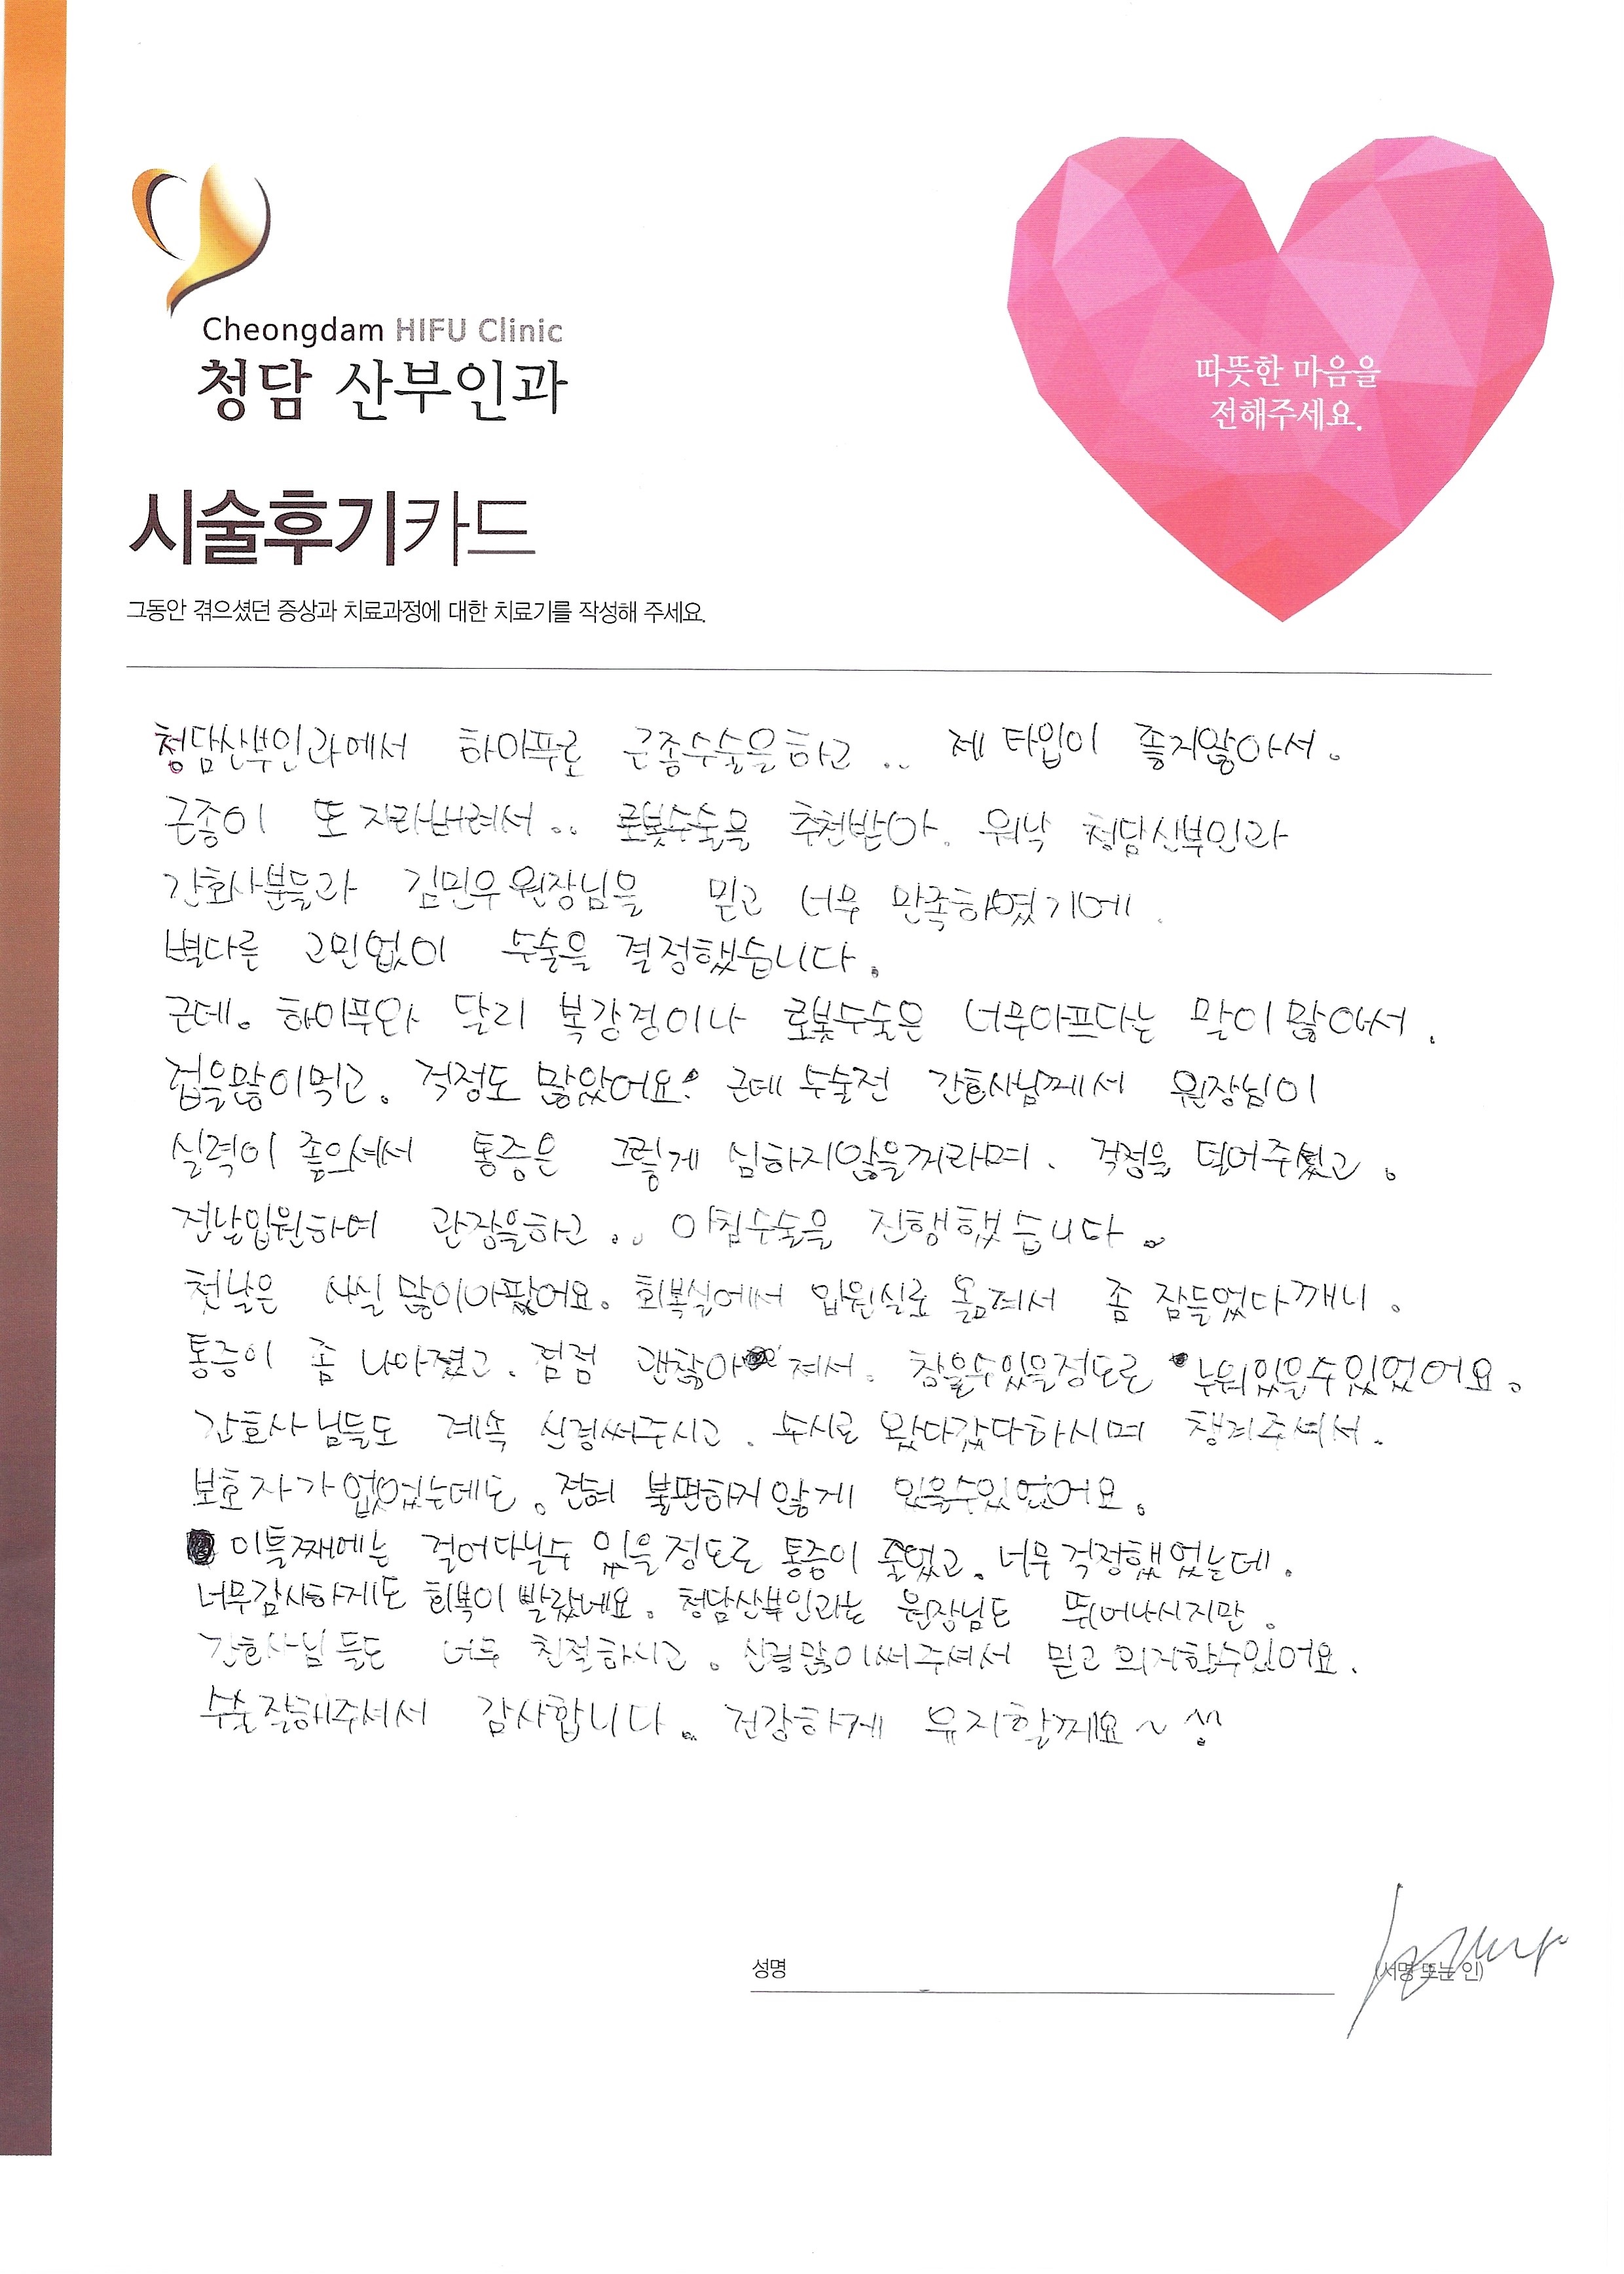 Cheongdam HIFU Clinic
청담 산부인과
따뜻한 마음을
전해주세요.
시술후기카드
그동안 겪으셨던 증상과 치료과정에 대한 치료기를 작성해 주세요.
청담산부인과에서 하이푸로 근종수술을하고.. 제 타입이 좋지않아서.
근종이 또 자라버려서.. 로봇수술을 추천받아. 워낙 청담산부인과
간호사분들과 김민우원장님을 믿고 너무 만족하였기에.
별다른 고민없이 수술을 결정했습니다.
근데. 하이푸와 달리 복강경이나 로봇수술은 너무아프다는 말이많아서.
겁을많이먹고. 걱정도 많았어요. 근데 수술전 간호사님께서 원장님이
실력이 좋으셔서 통증은 그렇게 심하지않을꺼라며. 걱정을 덜어주셨고.
전날입원하여 관장을하고.. 아침수술을 진행했습니다.
첫날은 사실 많이아팠어요. 회복실에서 입원실로 옮겨서 좀 잠들었다깨니.
통증이 좀 나아졌고. 점점 괜찮아져서. 참을수있을정도로 누워있을수있었어요.
간호사님들도 계속 신경써주시고. 수시로 왔다갔다하시며 챙겨주셔서.
보호자가 없었는데도. 전혀 불편하지않게 있을수있었어요.
이틀째에는 걸어다닐수 있을정도로 통증이 줄었고. 너무걱정했었는데.
너무감사하게도 회복이 빨랐네요. 청담산부인과는 원장님도 뛰어나시지만.
간호사님들도 너무 친절하시고. 신경많이써주셔서 믿고의지할수있어요.
수술잘해주셔서 감사합니다.. 건강하게 유지할께요~ ^^
성명
(서명 또는 인)